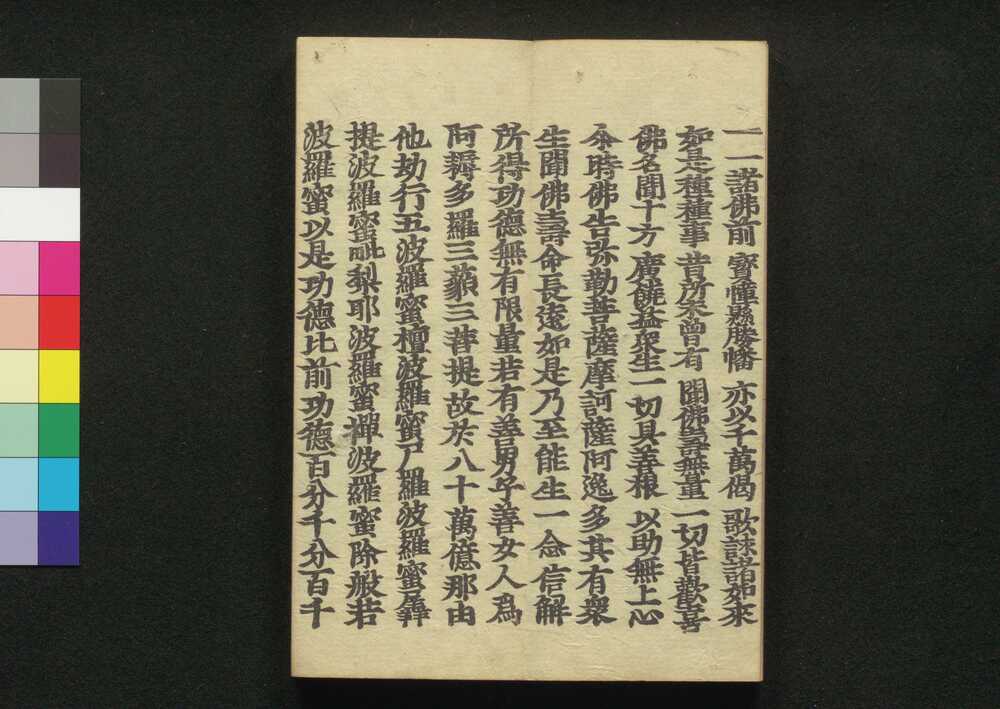 一一諸佛前 寶幢懸勝幡 亦以千萬偈 歌詠諸如來
如是種種事 昔所未曾有 聞佛壽無量 一切皆歡喜
佛名聞十方 廣饒益衆生 一切具善根 以助無上心
尒時佛告弥勒菩薩摩訶薩阿逸多其有衆
生聞佛壽命長遠如是乃至能生一念信解
所得功德無有限量若有善男子善女人爲
阿耨多羅三藐三菩提故於八十萬億那由
他劫行五波羅蜜檀波羅蜜尸羅波羅蜜羼
提波羅蜜毗梨耶波羅蜜禪波羅蜜除般若
波羅蜜以是功德比前功德百分千分百千